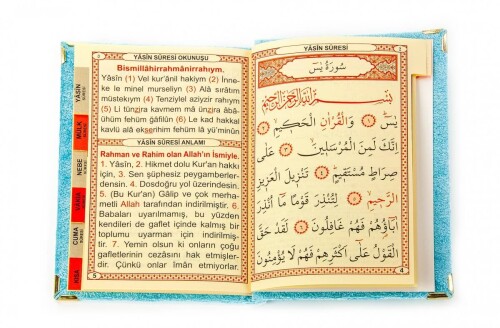 YÂSÎN SÛRESİ OKUNUŞU
Bismillâhirrahmânirrahıym.
Yâsîn (1) Vel kur'ânil hakiym (2) İnne-
ke le minel murseliyn (3) Alâ sırâtım
müstekıym (4) Tenziylel aziyzir rahıym
(5) Li tünzira kavmem mâ ünzira âbâ-
ühüm fehüm ğâfilûn (6) Le kad hakkal
kavlü alâ ekserihim fehüm lâ yü'minûn
YÂSÎN SÛRESİ ANLAMI
Rahman ve Rahim olan Allah'ın İsmiyle.
1. Yâsîn, 2. Hikmet dolu Kur'an hakkı
için, 3. Sen şüphesiz peygamberler-
densin. 4. Dosdoğru yol üzerindesin.
5. (Bu Kur'an) Gâlip ve çok merha-
metli Allah tarafından indirilmiştir. 6.
Babaları uyarılmamış, bu yüzden
kendileri de gaflet içinde kalmış bir
toplumu uyarman için indirilmiş-
tir. 7. Yemin olsun ki onların çoğu
gafletlerinin cezâsını hak etmişler-
dir. Çünkü onlar îman etmiyorlar.
5
YÂSÎN
SÛRESİ
MÜLK
SÛRESİ
NEBE
SÛRESİ
VÂKIA
SÛRESİ
CUMA
SÛRESİ
YÂSÎN SÛRESİ
سُورَةُ يٰسٓ
بِسْمِ اللّٰهِ الرَّحْمٰنِ الرَّحِيمِ
يٰسٓ ﴿١﴾ وَالْقُرْاٰنِ الْحَكِيمِ ﴿٢﴾
اِنَّكَ لَمِنَ الْمُرْسَلِينَ ﴿٣﴾ عَلٰى
صِرَاطٍ مُسْتَقِيمٍ ﴿٤﴾ تَنْزِيلَ الْعَزِيزِ
الرَّحِيمِ ﴿٥﴾ لِتُنْذِرَ قَوْمًا مَٓا اُنْذِرَ
اٰبَٓاؤُ۬هُمْ فَهُمْ غَافِلُونَ ﴿٦﴾ لَقَدْ حَقَّ
الْقَوْلُ عَلٰٓى اَكْثَرِهِمْ فَهُمْ لَا يُؤْمِنُونَ
4